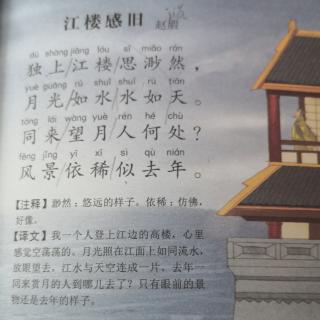 江楼感旧 赵嘏
dú shàng jiāng lóu sī miǎo rán
独上/江楼/思渺然，
yuè guāng rú shuǐ shuǐ rú tiān
月光/如水/水如天。
tóng lái wàng yuè rén hé chù
同来/望月/人何处？
fēng jǐng yī xī sì qù nián
风景/依稀/似去年。
【注释】渺然：悠远的样子。依稀：仿佛，
好像。
【译文】我一个人登上江边的高楼，心里
感觉空荡荡的。月光照在江面上如同流水，
放眼望去，江水与天空连成一片。去年一
同来赏月的人到哪儿去了？只有眼前的景
物还是去年的样子。